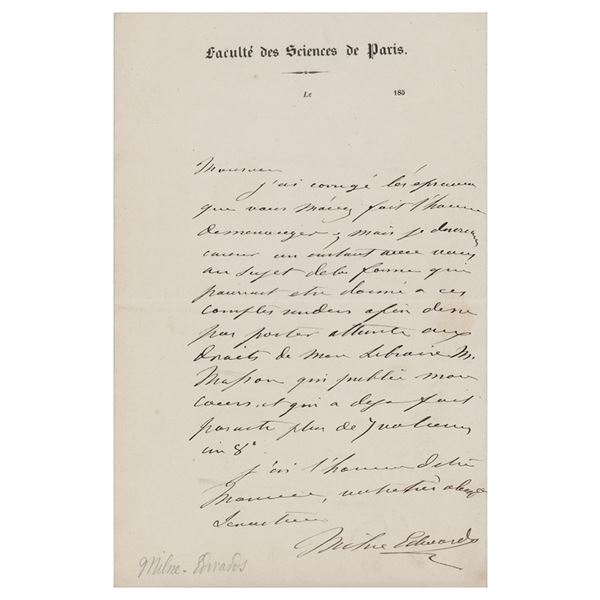 Faculté des Sciences de Paris.
Le 185
Monsieur
J'ai corrigé les épreuves
que vous m'avez fait l'honneur
de m'envoyer, mais je désirerais
causer un instant avec vous
au sujet de la forme que
pourrait etre donnée a ces
comptes rendus afin de ne
pas porter atteinte aux
droits de mon Libraire M.
Masson qui publie mon
cours, et qui a deja fait
paraitre plus de 7 volumes
in 8°
J'ai l'honneur d'etre
Monsieur, votre très obligé
Serviteur
Milne Edwards
Milne-Edwards